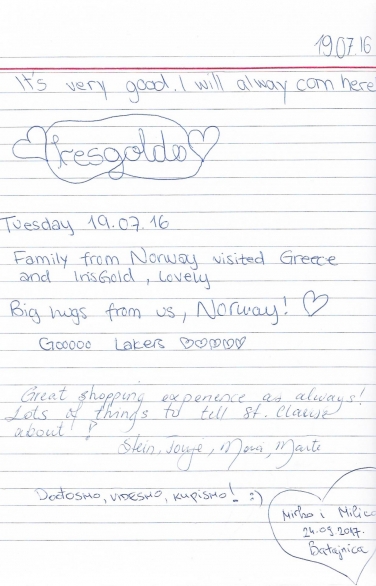 19.07.16
It's very good. I will alway com here
Iresgoldo
Tuesday 19.07.16
Family from Norway visited Greece
and IrisGold, Lovely
Big hugs from us, Norway! ♡
Gooooo Lakers ♡♡♡♡♡
Great shopping experience as always!
Lots of things to tell St. Clause
about!
Stein, Mona, Marte
Dođosmo, vidесmo, kupismo! :)
Mirko i Milica
24.09.2017.
Batajnica